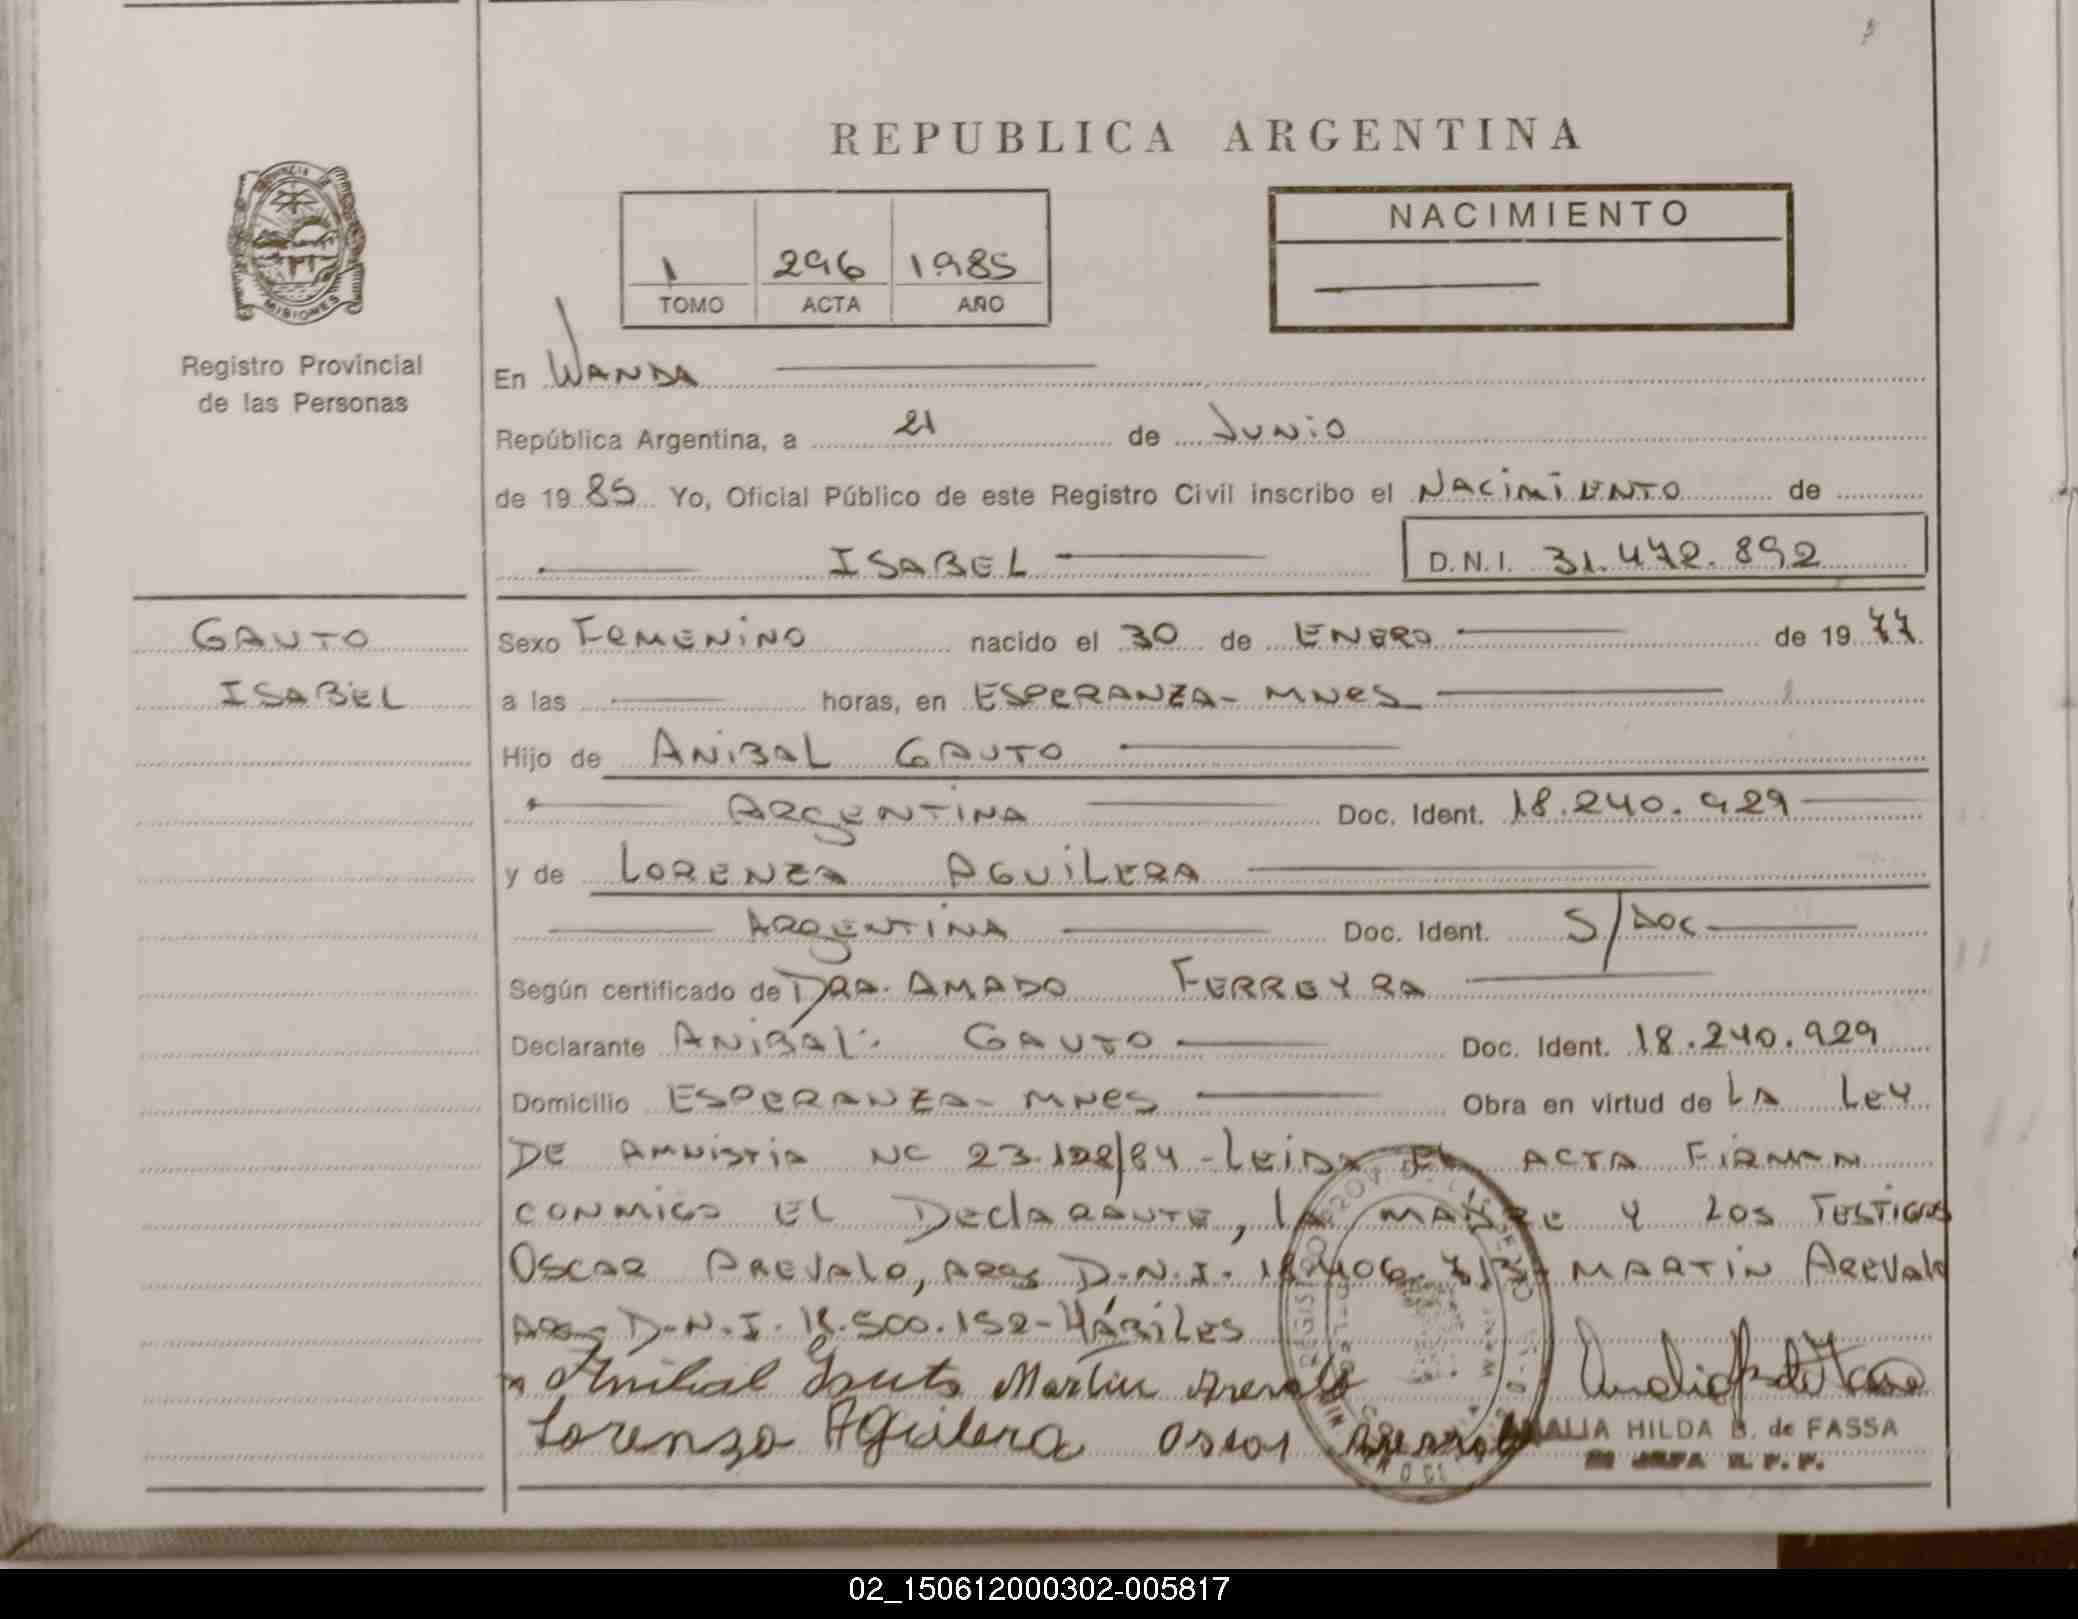 REPUBLICA ARGENTINA
PROVINCIA DE
MISIONES
Registro Provincial
de las Personas
1 296 1985
TOMO ACTA AÑO
NACIMIENTO
En WANDA
República Argentina, a 21 de JUNIO
de 1985 Yo, Oficial Público de este Registro Civil inscribo el NACIMIENTO de
ISABEL D.N.I. 31.472.892
GAUTO
ISABEL
Sexo FEMENINO nacido el 30 de ENERO de 1977
a las horas, en ESPERANZA- MNES
Hijo de ANIBAL GAUTO
ARGENTINA Doc. Ident. 18.240.929
y de LORENZA AGUILERA
ARGENTINA Doc. Ident. S/DOC
Según certificado de DRA. AMADO FERREYRA
Declarante ANIBAL GAUTO Doc. Ident. 18.240.929
Domicilio ESPERANZA- MNES Obra en virtud de LA LEY
DE AMNISTIA Nº 23.128/84 - LEIDA EL ACTA FIRMAN
CONMIGO EL DECLARANTE, LA MADRE Y LOS TESTIGOS
OSCAR AREVALO, ARG D.N.I. MARTIN AREVALO
ARG. D.N.I. 18.500.152- HÁBILES
Anibal Gauto Martin Arevalo
Lorenza Aguilera Oscar Arevalo
AMALIA HILDA B. de FASSA
JEFA R. P. P.
02_150612000302-005817